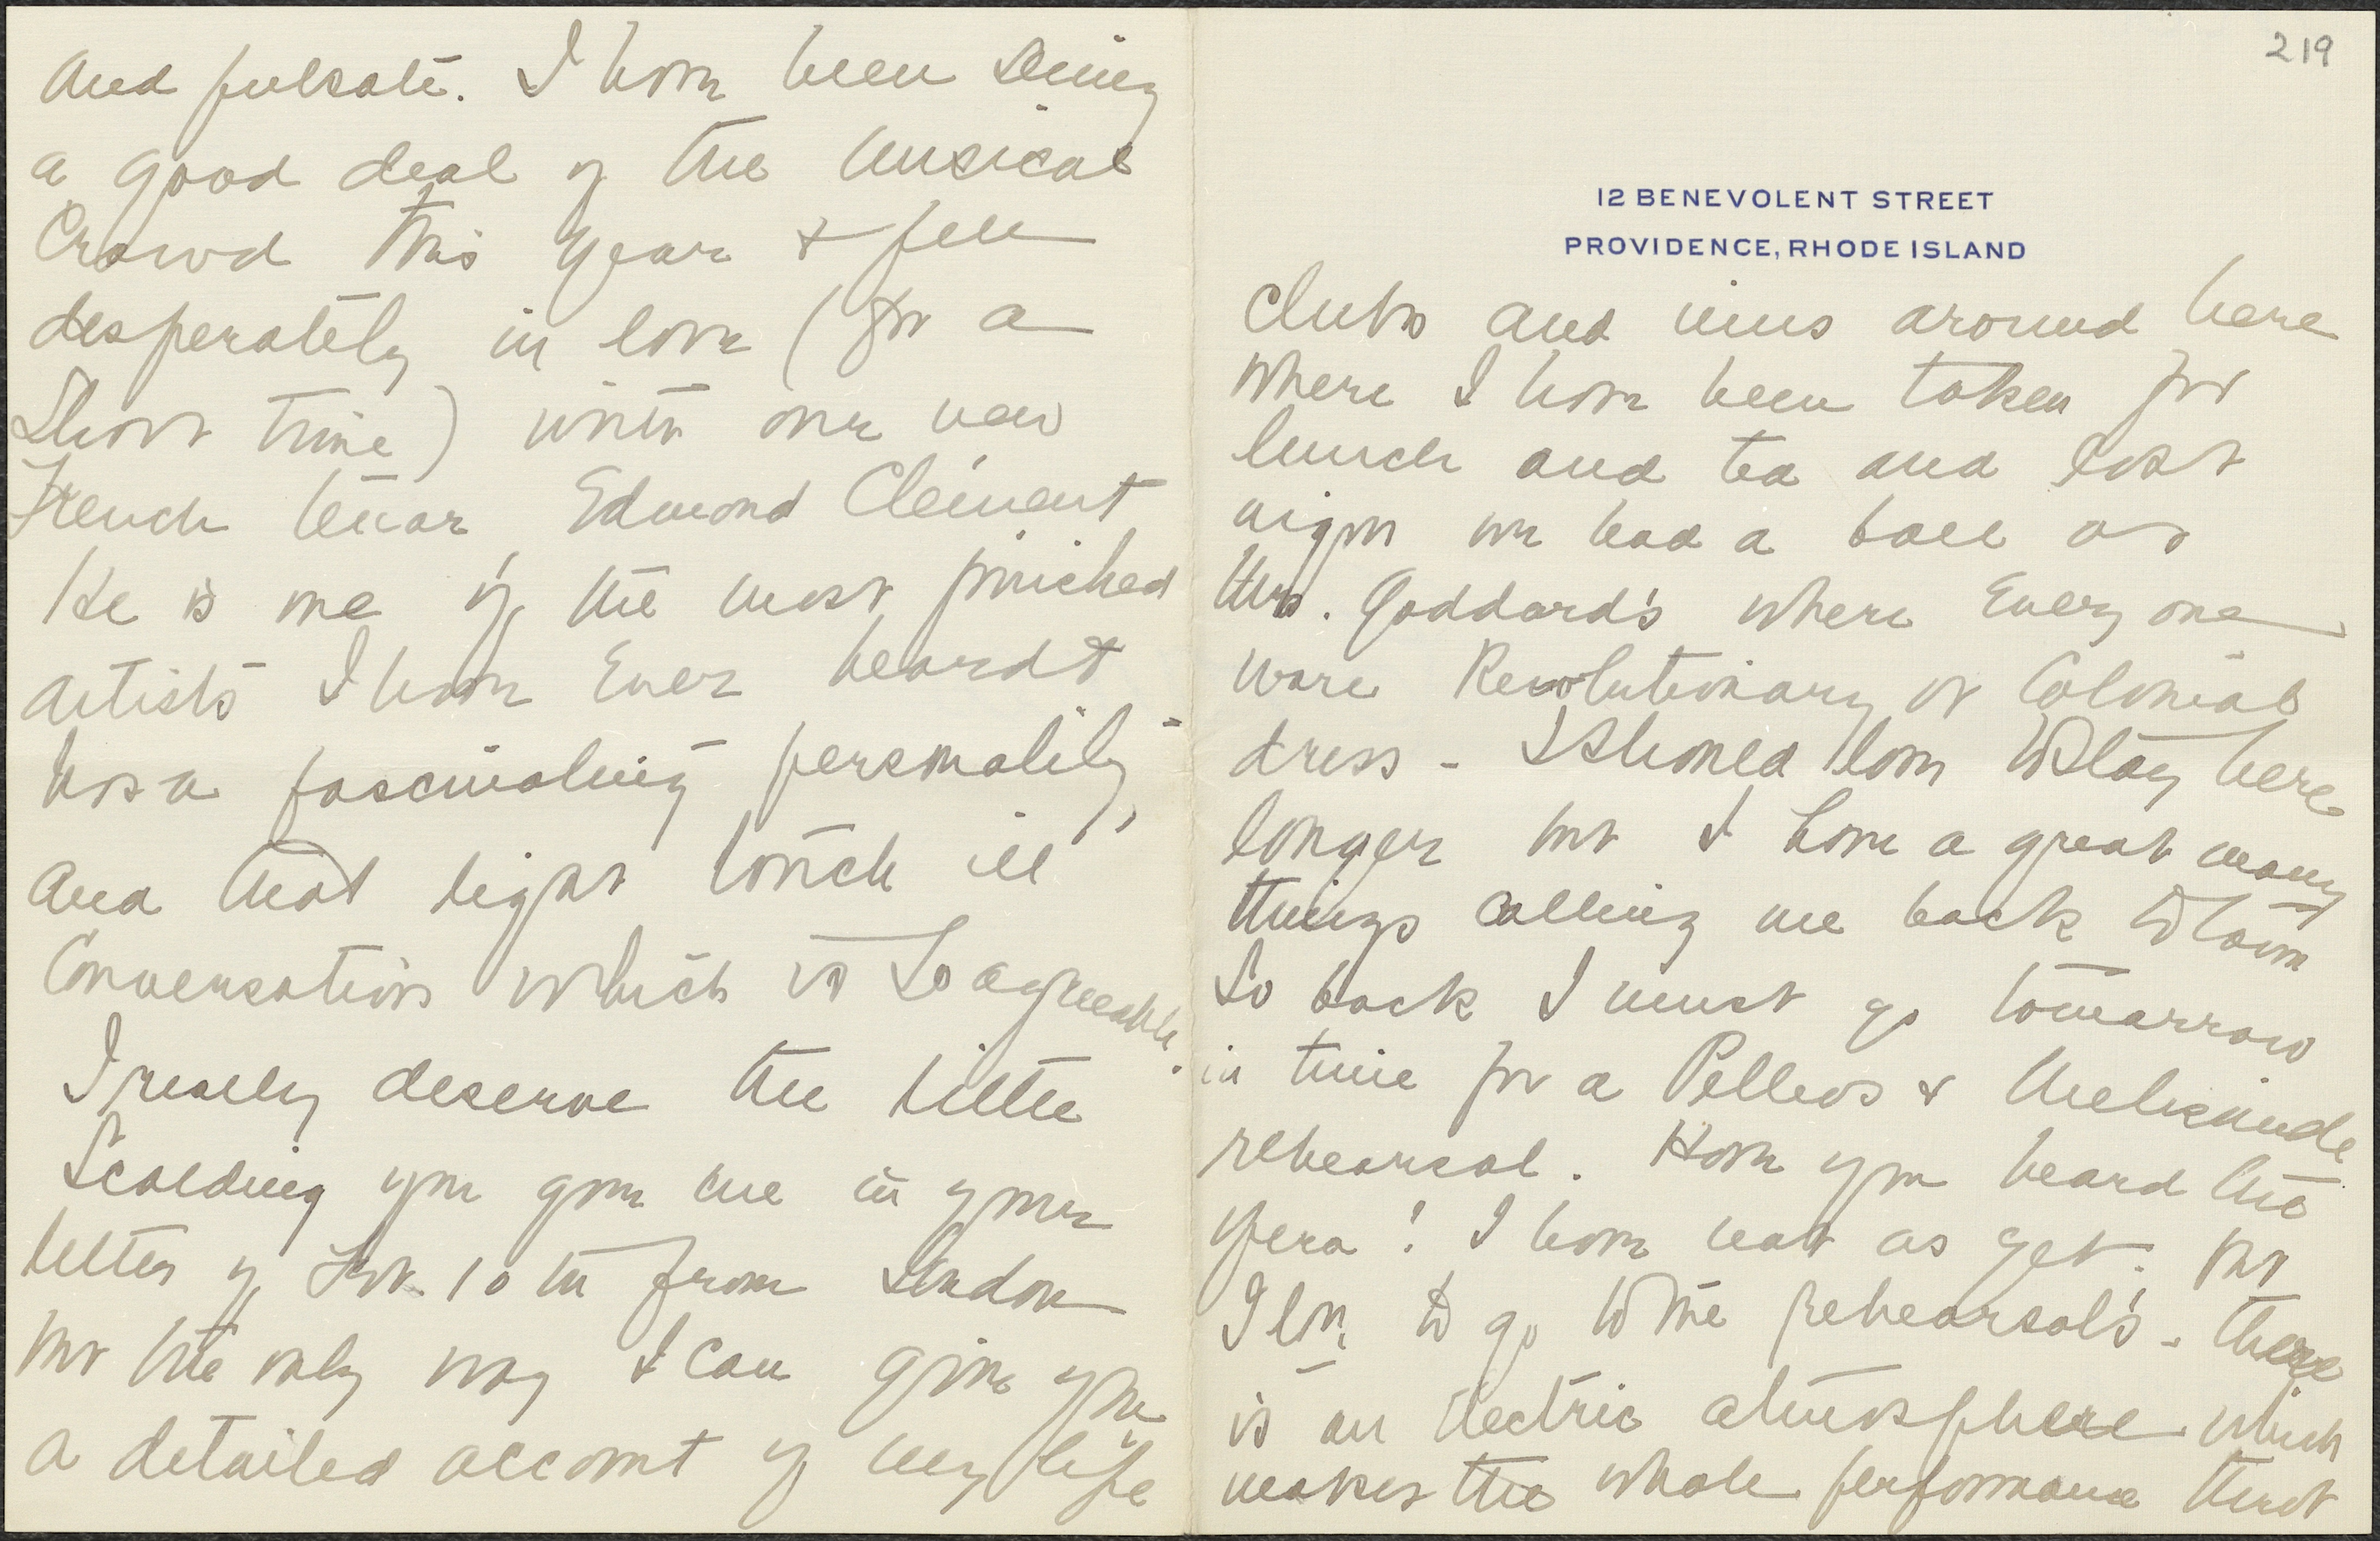 and pulsate. I have been seeing
a good deal of the musical
crowd this year & fell
desperately in love (for a
short time) with our new
French tenor Edmond Clément
He is one of the most finished
artists I have ever heard &
has a fascinating personality,
and that light touch in
conversation which is so agreeable.
I really deserve the little
scolding you gave me in your
letter of Feb. 10th from London
but the only way I can give you
a detailed account of my life
219
12 BENEVOLENT STREET
PROVIDENCE, RHODE ISLAND
clubs and inns around here
where I have been taken for
lunch and tea and last
night we had a ball at
Mrs. Goddard's where every one
wore Revolutionary or Colonial
dress - I should love to stay here
longer but I have a great many
things calling me back to town
so back I must go tomorrow
in time for a Pelleas & Melisande
rehearsal. Have you heard the
opera! I have not as yet. but
I love to go to the rehearsals - there
is an electric atmosphere which
makes the whole performance throb